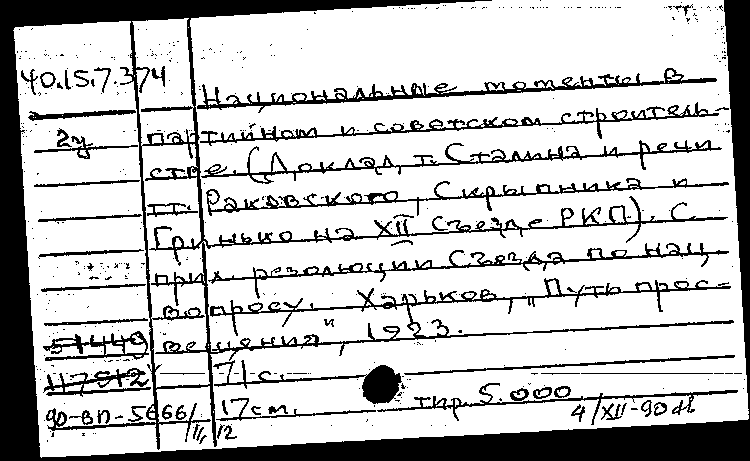 40.15.7.374
Национальные моменты в
2у партийном и советском строитель-
стве. (Доклад т. Сталина и речи
тт. Раковского, Скрыпника и
Гринько на XII Съезде РКП). С
прил. резолюции Съезда по нац.
вопросу. Харьков, „Путь прос-
51449 вещения", 1923.
117912 71 с.
90-вп-5666/ 17см. тир. 5.000
II, 12 4/XII-90